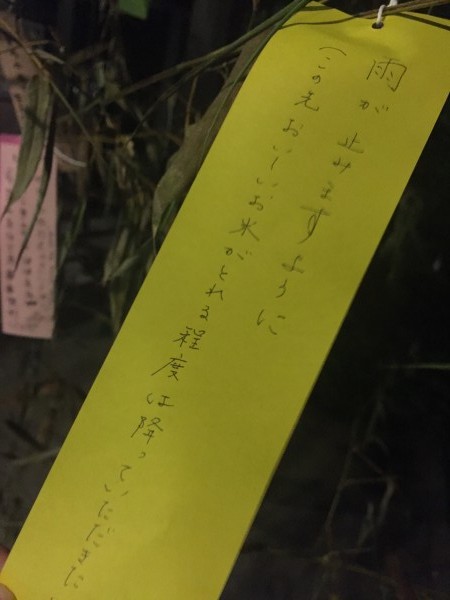 雨が止みますように
(この先おいしいお米がとれる程度は降っていただきた